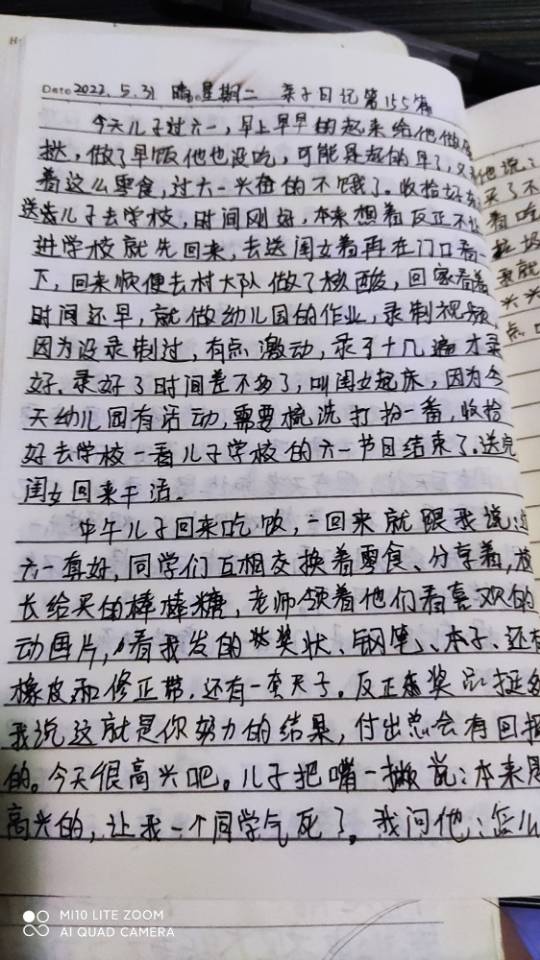 Date 2022.5.31 晴。星期二 亲子日记第155篇
今天儿子过六一,早上早早的起来给他做
挞,做了早饭他也没吃,可能是起的早了,又
着这么零食,过六一兴奋的不饿了。收拾好
送去儿子去学校,时间刚好,本来想着反正不让
进学校就先回来,去送闺女着再在门口看一
下,回来顺便去村大队做了核酸,回家看着
时间还早,就做幼儿园的作业,录制视频,
因为没录制过,有点激动,录了十几遍才录
好.录好了时间差不多了,叫闺女起床,因为今
天幼儿园有活动,需要梳洗打扮一番,收拾
好去学校一看儿子学校的六一节目结束了.送完
闺女回来干活.
中午儿子回来吃饭,一回来就跟我说:过
六一真好,同学们互相交换着零食、分享着,校
长给买的棒棒糖,老师领着他们看喜欢的
动画片,看我发的奖状、钢笔、本子、还有
橡皮和修正带.还有一套尺子。反正奖品挺多
我说这就是你努力的结果,付出总会有回报
的。今天很高兴吧。儿子把嘴一撇说:本来是
高兴的,让我一个同学气死了。我问他:怎么
他说:
买了不
着吃
点
MI10 LITE ZOOM
AI QUAD CAMERA